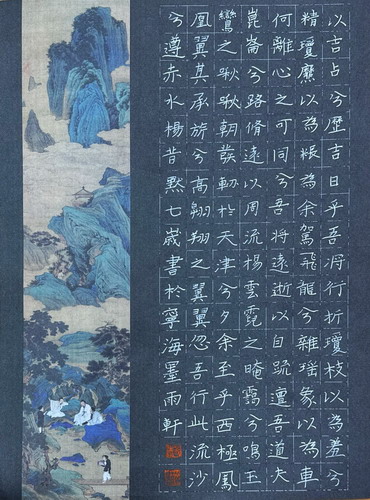 以吉占兮歷吉日乎吾將行折瓊枝以為羞兮
精瓊爢以為粻為余駕飛龍兮雜瑤象以為車
何離心之可同兮吾將遠逝以自疏邅吾道夫
崑崙兮路脩遠以周流楊雲霓之晻藹兮鳴玉
鸞之啾啾朝發軔於天津兮夕余至乎西極鳳
凰翼其承旂兮高翱翔之翼翼忽吾行此流沙
兮遵赤水楊昔默七歲書於寧海墨雨軒